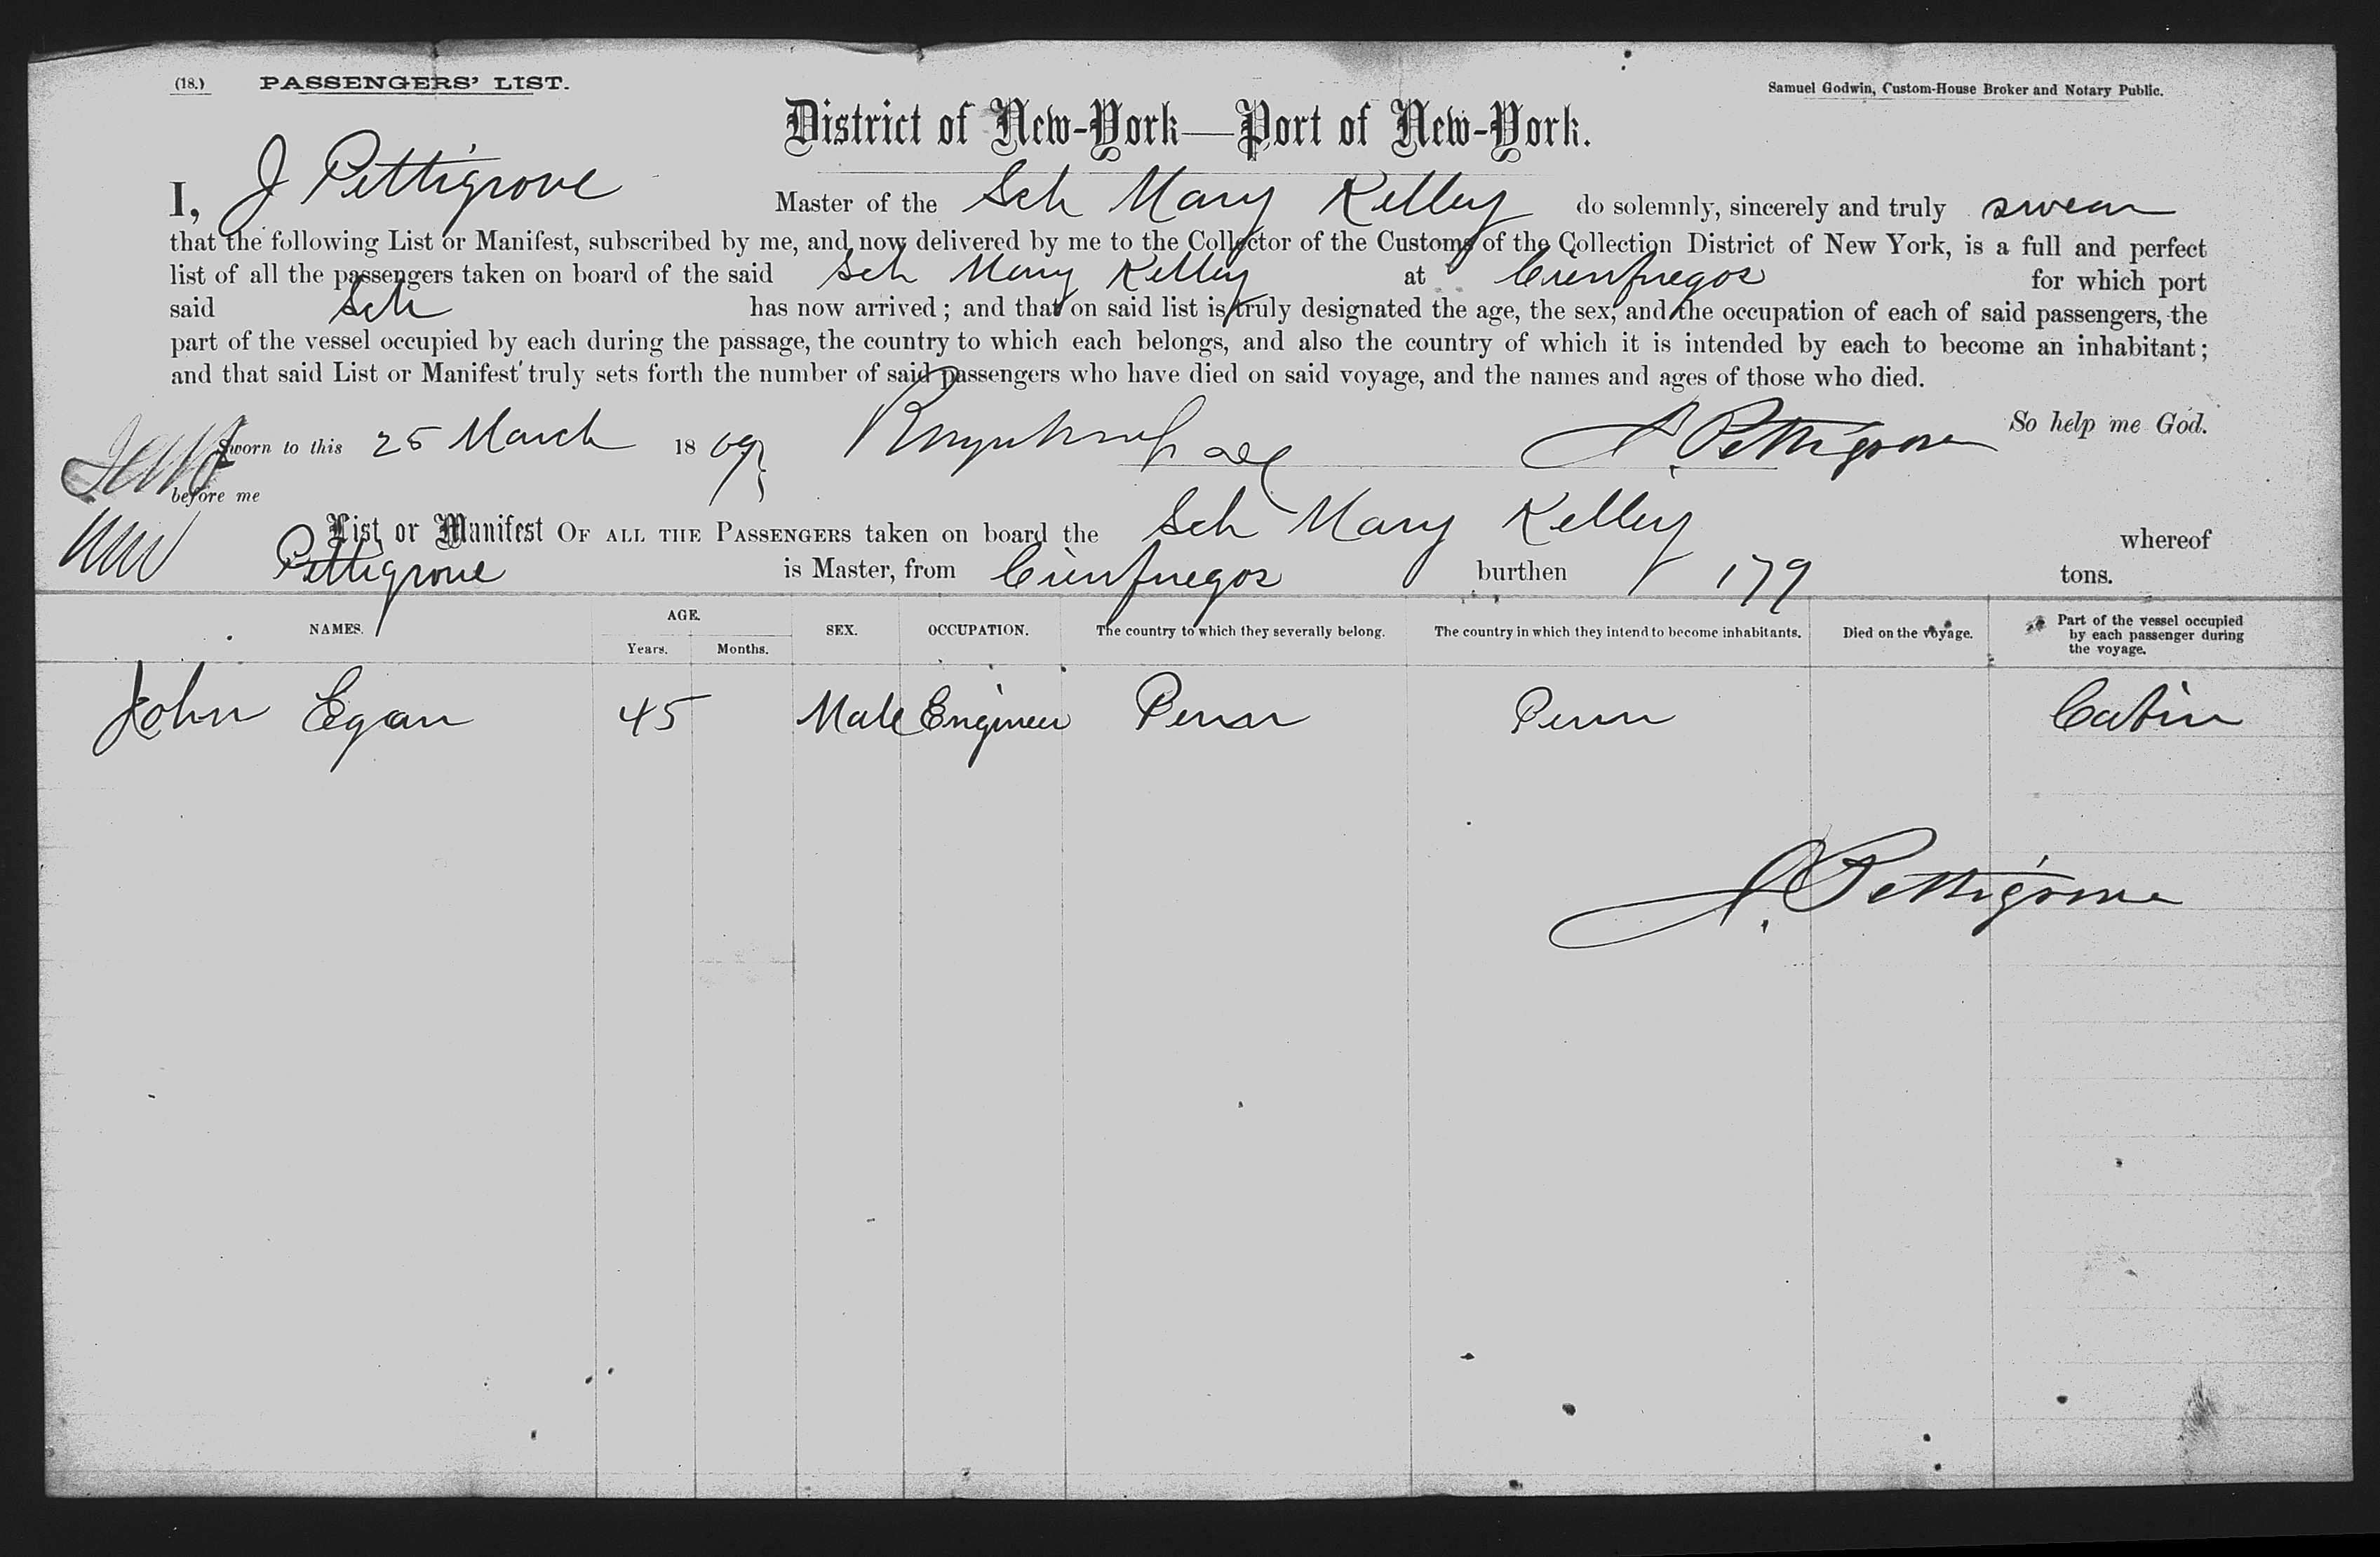 (18.) PASSENGERS' LIST.
Samuel Godwin, Custom-House Broker and Notary Public.
District of New-York—Port of New-York.
I, J Pettigrove Master of the Sch Mary Kelley do solemnly, sincerely and truly swear
that the following List or Manifest, subscribed by me, and now delivered by me to the Collector of the Customs of the Collection District of New York, is a full and perfect
list of all the passengers taken on board of the said Sch Mary Kelley at Cienfuegos for which port
said Sch has now arrived; and that on said list is truly designated the age, the sex, and the occupation of each of said passengers, the
part of the vessel occupied by each during the passage, the country to which each belongs, and also the country of which it is intended by each to become an inhabitant;
and that said List or Manifest truly sets forth the number of said passengers who have died on said voyage, and the names and ages of those who died.
So help me God.
Sworn to this 25 March 1869 J. Pettigrove
before me
List or Manifest OF ALL THE PASSENGERS taken on board the Sch Mary Kelley whereof
Pettigrove is Master, from Cienfuegos burthen 179 tons.
NAMES. AGE. Years. Months. SEX. OCCUPATION. The country to which they severally belong. The country in which they intend to become inhabitants. Died on the voyage. Part of the vessel occupied by each passenger during the voyage.
John Egan 45 Male Engineer Penn Penn Cabin
J. Pettigrove